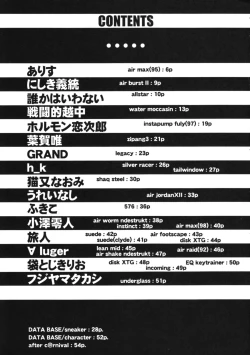 CONTENTS
ありす air max(95) : 6p
にしき義統 air burst II : 9p
誰かはいわない allstar : 10p
戦闘的越中 water moccasin : 13p
ホルモン恋次郎 instapump fuly(97) : 19p
葉賀唯 zipang3 : 21p
GRAND legacy : 23p
h_k silver racer : 26p tailwindow : 27p
猫又なおみ shaq steel : 30p
うれいなし air jordanXII : 31p
ふきこ 576 : 36p
小澤零人 air worm ndestrukt : 38p instinct : 39p air max(98) : 40p
旅人 suede : 42p suede(clyde) : 41p air footscape : 43p disk XTG : 44p
∀ luger lean mid : 45p air shake ndestrukt : 47p air raid(92) : 46p
袋とじきりお disk XTG : 48p incoming : 49p EQ keytrainer : 50p
フジヤマタカシ underglass : 51p
DATA BASE/sneaker : 28p.
DATA BASE/character : 52p.
after c@rnival : 54p.